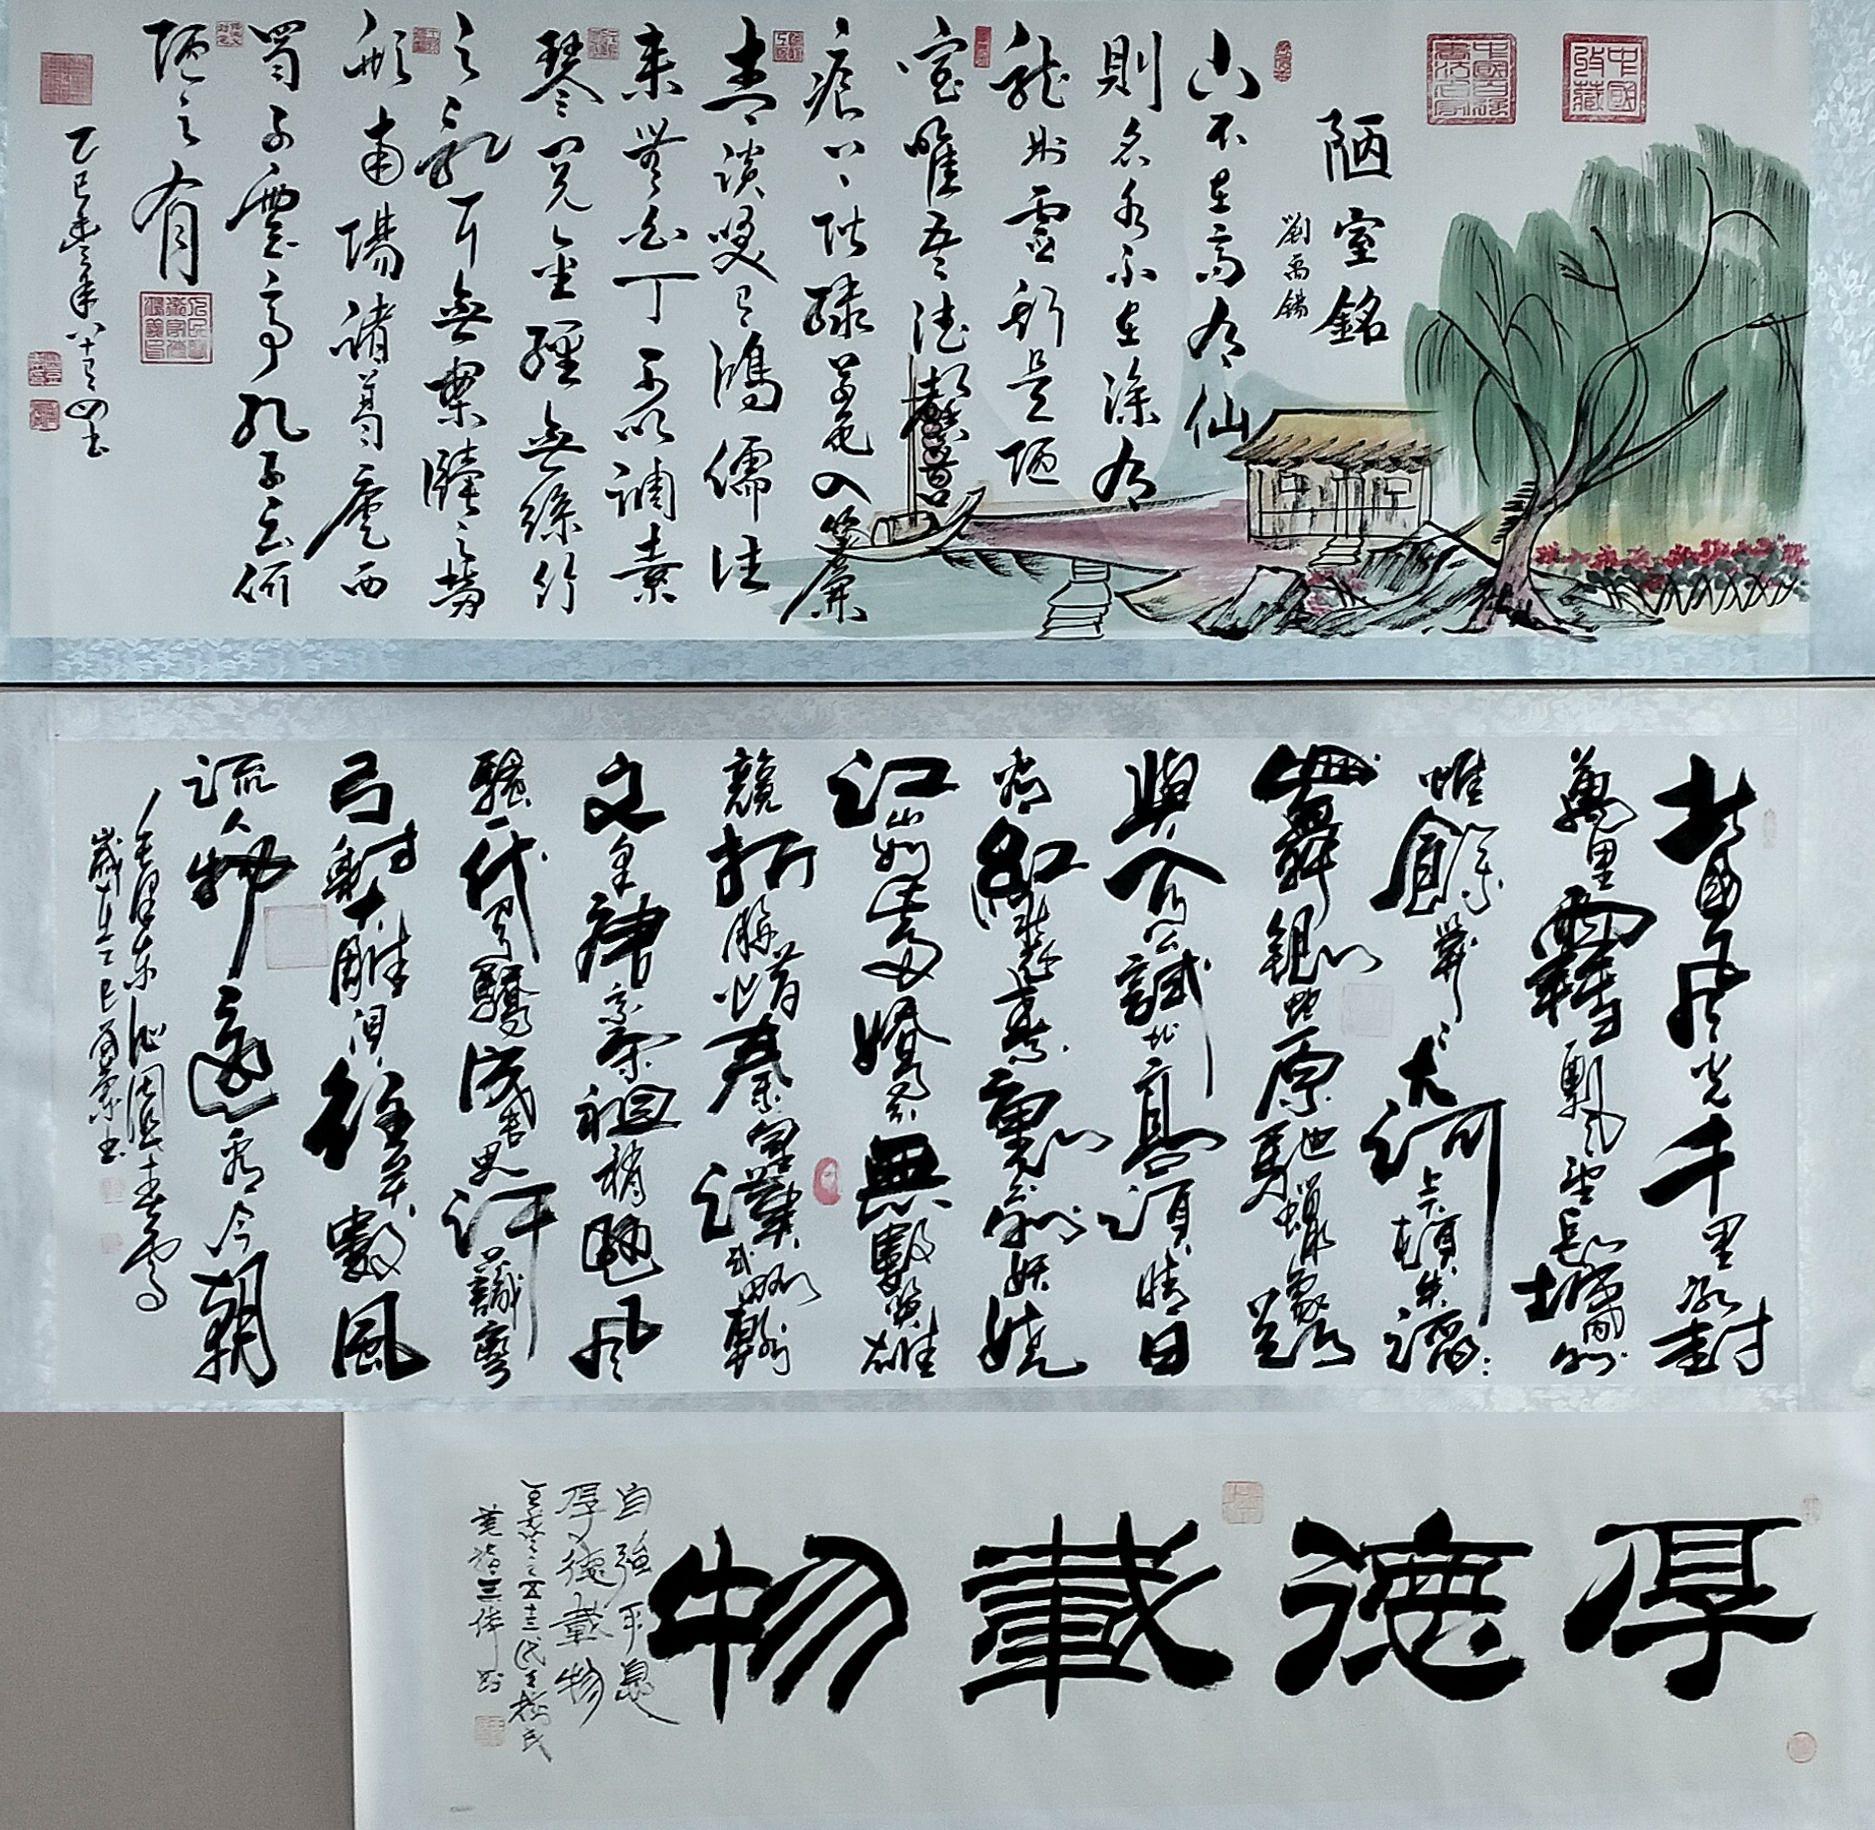 陋室銘
劉禹錫
山不在高有仙
則名水不在深有
龍則靈斯是陋
室唯吾德馨苔
痕上階綠草色入簾
青談笑有鴻儒往
來無白丁可以調素
琴閱金經無絲竹
之亂耳無案牘之勞
形南陽諸葛廬西
蜀子雲亭孔子云何
陋之有
乙巳年八十有四書
中國收藏
北國風光千里冰封
萬里雪飄望長城內外
惟餘莽莽大河上下頓失滔滔
山舞銀蛇原馳蠟象欲
與天公試比高須晴日
看紅裝素裹分外妖嬈
江山如此多嬌引無數英雄
競折腰惜秦皇漢武略輸
文采唐宗宋祖稍遜風
騷一代天驕成吉思汗只識彎
弓射大雕俱往矣數風
流人物還看今朝
毛澤東沁園春雪
歲在乙巳書
厚德載物
自強不息
厚德載物